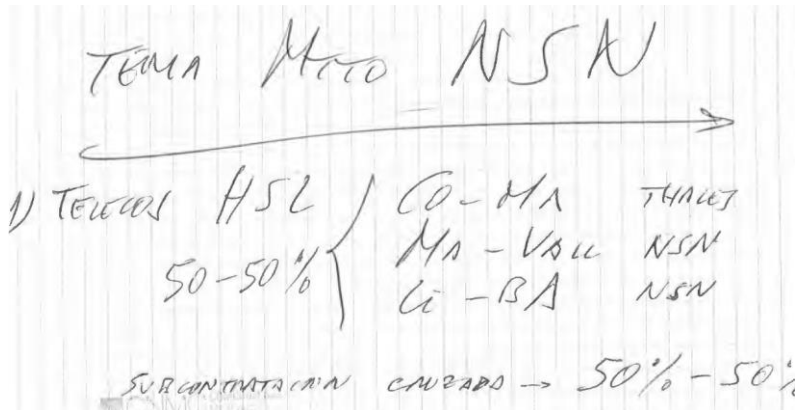 TEMA Mtto NSN
1) TELECOS HSL Co-MA THALES
50-50% MA-VALL NSN
Li-BA NSN
SUBCONTRATACIÓN CRUZADA → 50%-50%